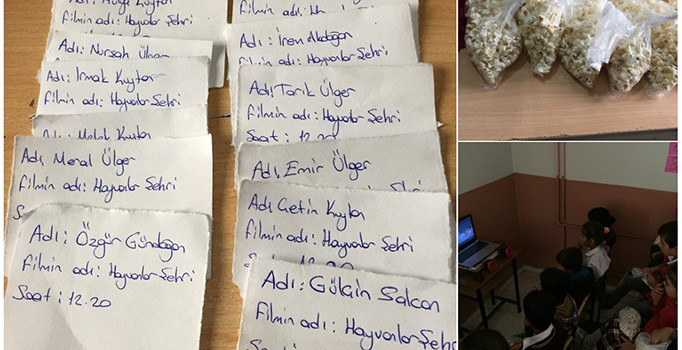 Filmin adı: Hayvanlar Şehri
Adı: Nursah Ülger
Adı: Irmak Kuytan
Filmin adı: Hayvanlar Şehri
Adı: Meral Ülger
Filmin adı: Hayvanlar Şehri
Adı: Özgür Gündoğan
Filmin adı: Hayvanlar Şehri
Saat: 12.20
Filmin adı:
Adı: İrem Akdoğan
Filmin adı: Hayvanlar Şehri
Adı: Tarık Ülger
Filmin adı: Hayvanlar Şehri
Saat: 12.20
Adı: Emir Ülger
Adı: Çetin Kuytan
Filmin adı: Hayvanlar Şehri
Adı: Gülçin Salcan
Filmin adı: Hayvanlar Şehri